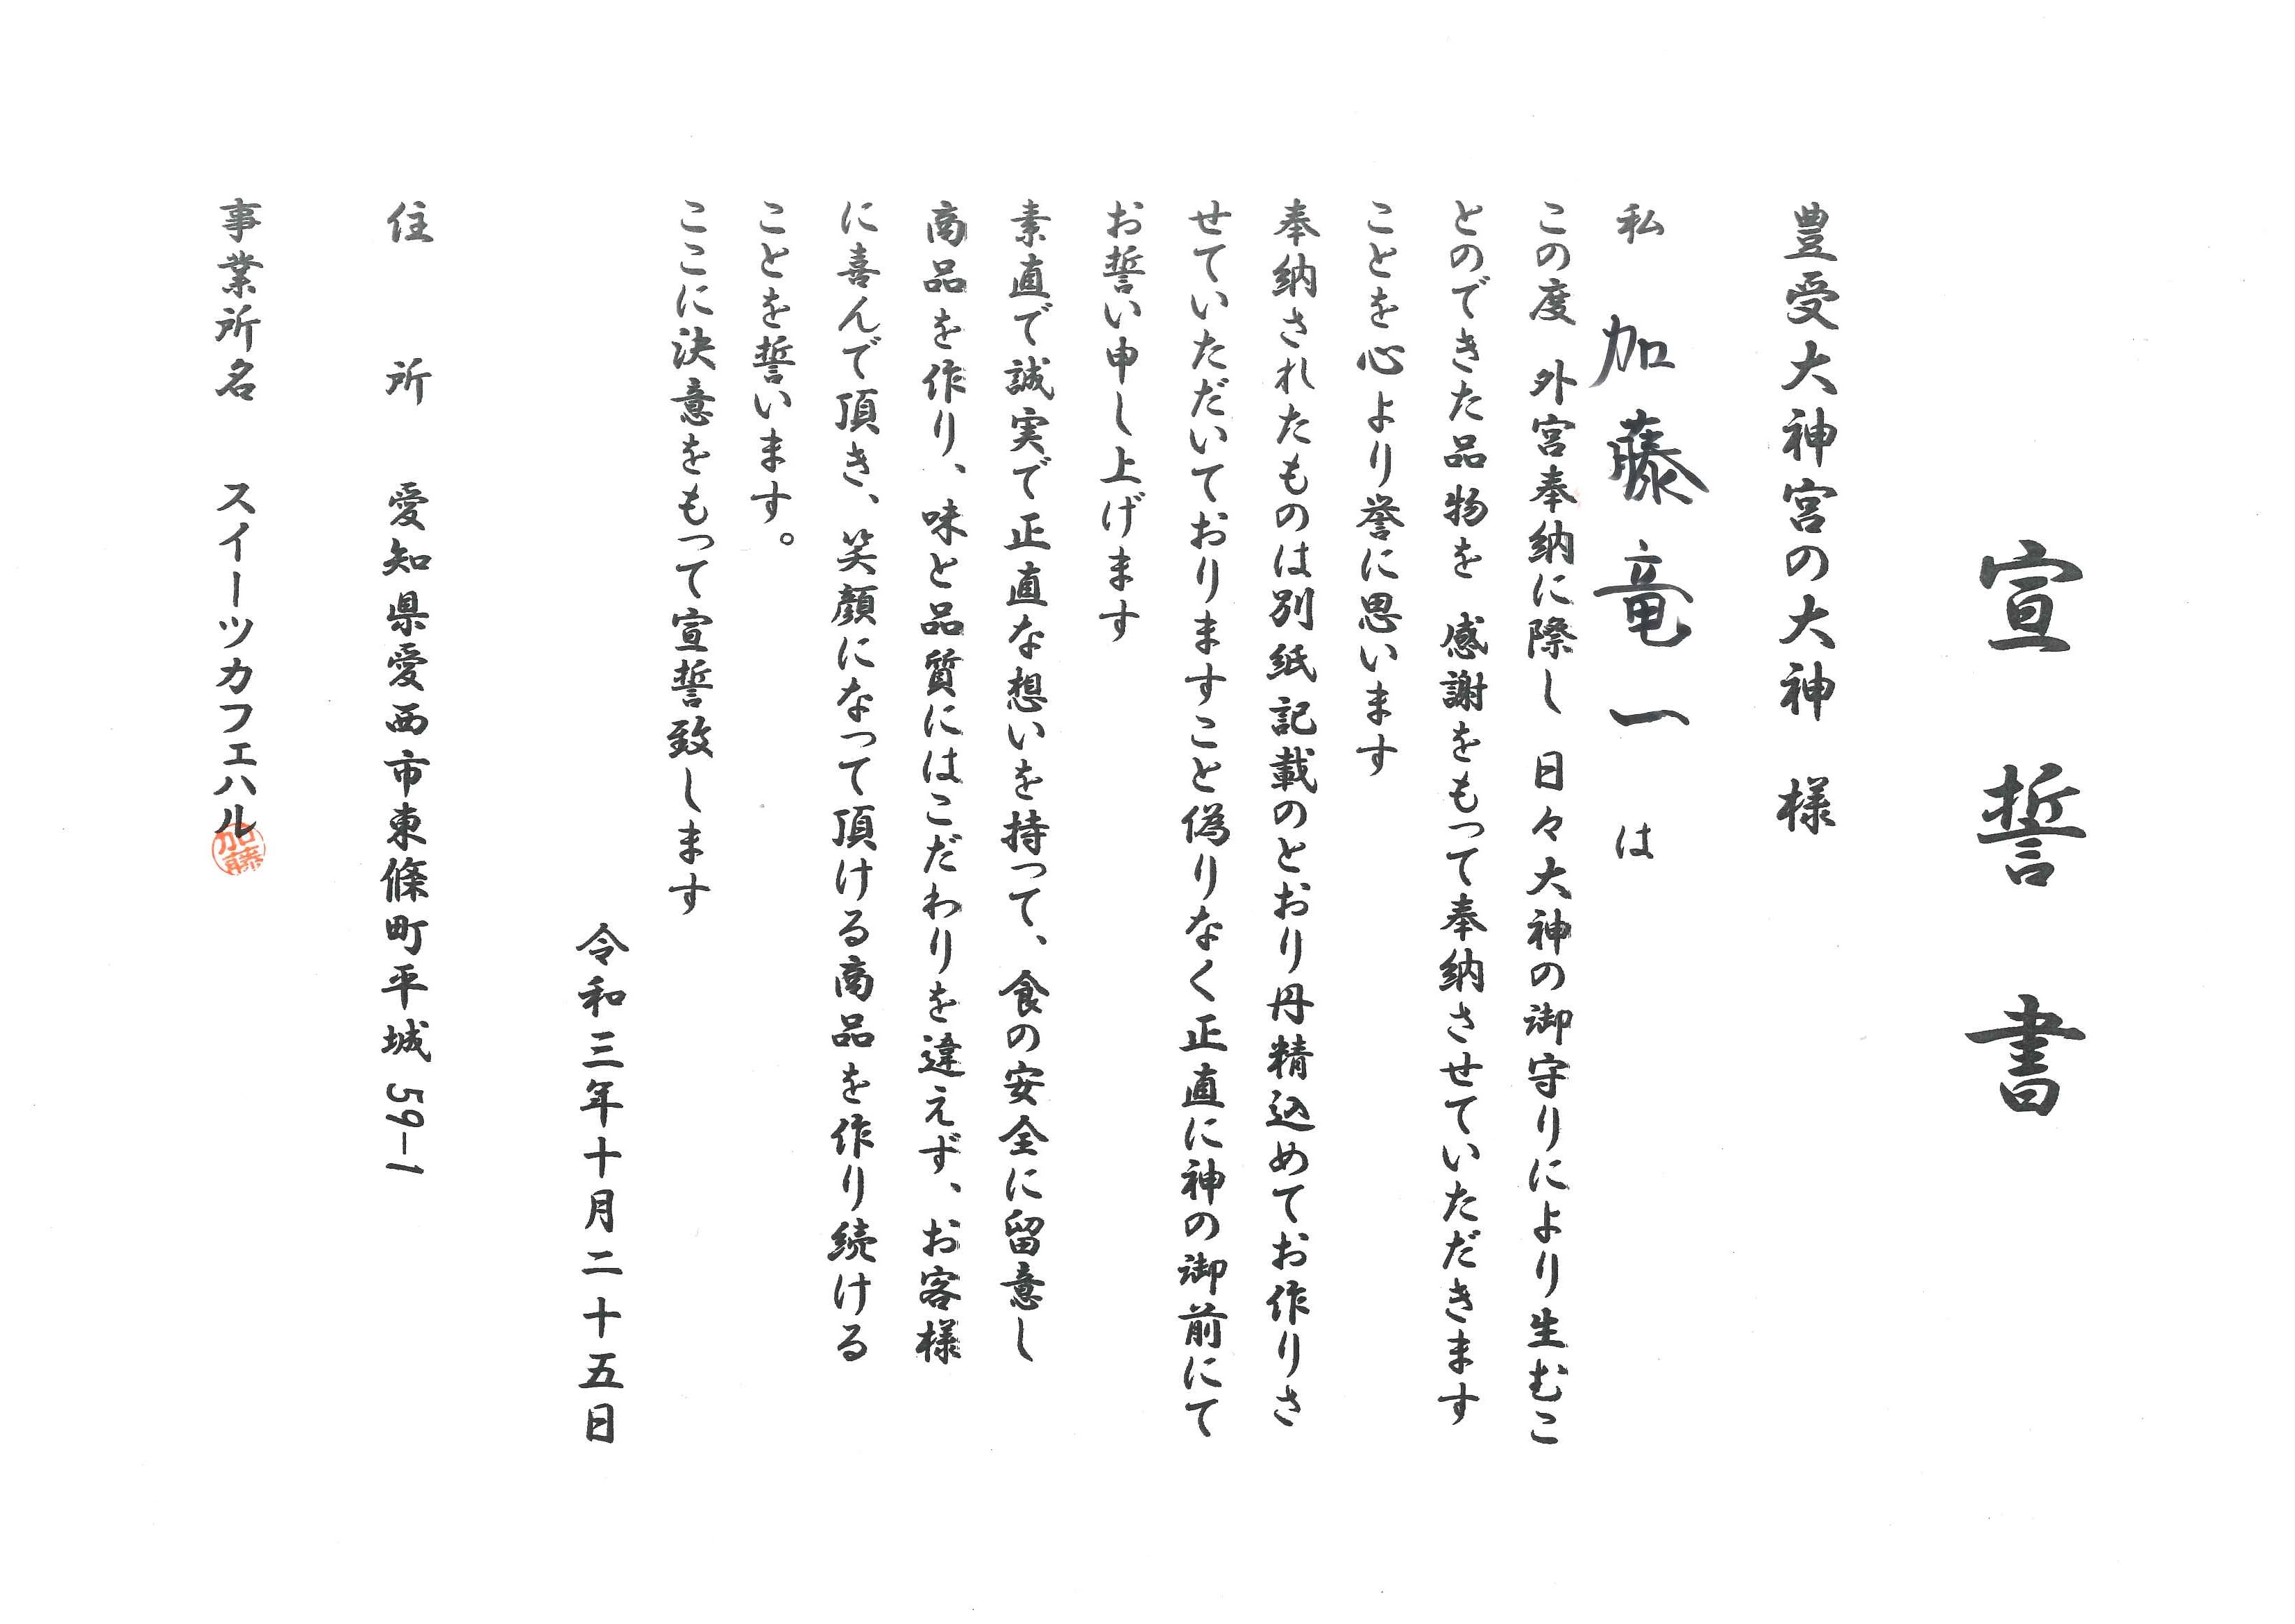 宣誓書
豊受大神宮の大神　様
私　加藤竜一　は
この度　外宮奉納に際し　日々大神の御守りにより生むこ
とのできた品物を　感謝をもって奉納させていただきます
ことを心より誉に思います
奉納されたものは別紙記載のとおり丹精込めてお作りさ
せていただいておりますこと偽りなく正直に神の御前にて
お誓い申し上げます
素直で誠実で正直な想いを持って、食の安全に留意し
商品を作り、味と品質にはこだわりを違えず、お客様
に喜んで頂き、笑顔になって頂ける商品を作り続ける
ことを誓います。
ここに決意をもって宣誓致します
令和三年十月二十五日
住　所　愛知県愛西市東條町平城 59-1
事業所名　スイーツカフェハル
加藤